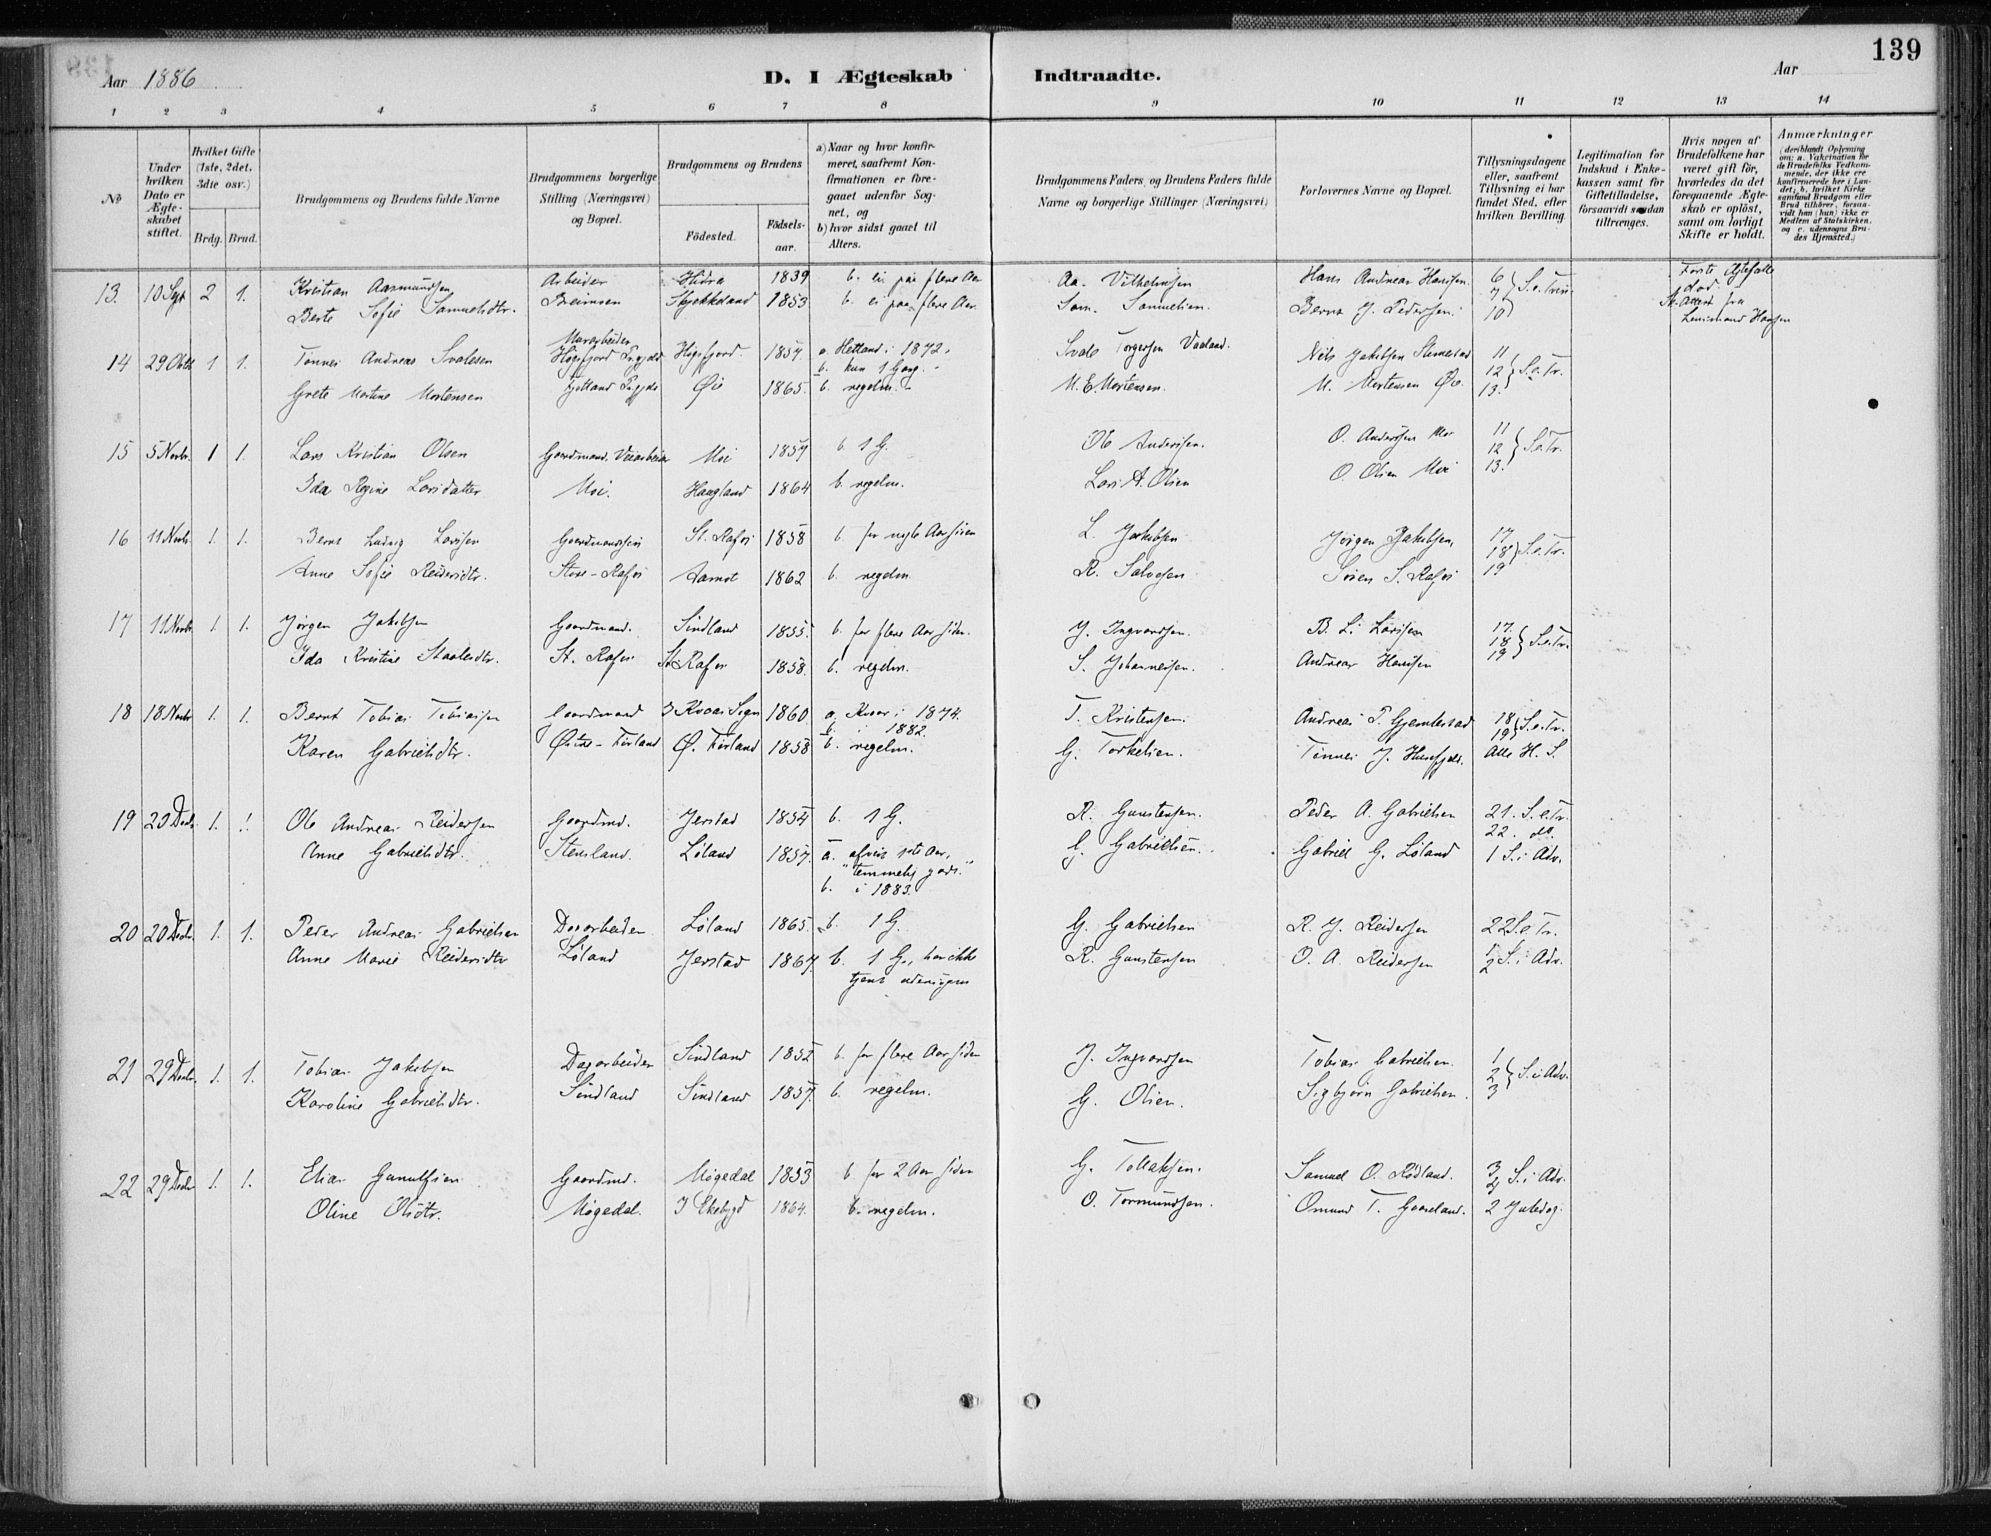 139
Aar 1886
D. I Ægteskab Indtraadte.
Aar
1 2 3 4 5 6 7 8 9 10 11 12 13 14
No
Under hvilken Dato er Ægteskabet stiftet.
Hvilket Gifte (1ste, 2det, 3die osv.)
Brdg. Brud.
Brudgommens og Brudens fulde Navne
Brudgommens borgerlige Stilling (Næringsvei) og Bopæl.
Brudgommens og Brudens
Födested. Födselsaar.
a) Naar og hvor konfirmeret, saafremt Konfirmationen er foregaaet udenfor Sognet, og
b) hvor sidst gaaet til Alters.
Brudgommens Faders og Brudens Faders fulde Navne og borgerlige Stillinger (Næringsvei)
Forlovernes Navne og Bopæl.
Tillysningsdagene eller, saafremt Tillysning ei har fundet Sted, efter hvilken Bevilling.
Legitimation for Indskud i Enkekassen samt for Giftetilladelse, forsaavidt saadan tiltrænges.
Hvis nogen af Brudefolkene har været gift før, hvorledes da det foregaaende Ægteskab er oplöst, samt om lovligt Skifte er holdt.
Anmærkninger (deriblandt Oplysning om: a. Vakcination for de Brudefolks Vedkommende, der ikke ere konfirmerede her i Landet; b. hvilket Kirkesamfund Brudgom eller Brud tilhörer, forsaavidt han (hun) ikke er Medlem af Statskirken, og c. udensogns Brudes Hjemsted.)
13. 10 Sept 2 1. Kristian Aasmundsen Arbeider Hidra 1839 b. ei paa flere Aar Aa. Vilhelmsen Hans Andreas Hansen 6 7 10 S. e. Trin.
Berte Sofie Samuelsdtr. 1853 b. ei paa flere Aar Sam. Samuelsen. Bernt J. Pedersen.
14 29 Oktb 1 1. Tønnes Andreas Svalesen Murarbeider Høgsfjord 1857 a. Hetland i 1872. b. kun 1 Gang. Svale Torgersen Vaaland. Nils Jakobsen 11 12 13. S. e. Tr.
Grete Martine Mortensen Øie 1865. b. regelm. M. E. Mortensen. M. Mortensen Øie.
15 5 Novb. 1 1. Lars Kristian Olsen Gaardmand, Veiarbeider Moi 1859 b. 1 G. Ole Andersen. O. Andersen Moi 11 12 13. S. e. Tr.
Ida Regine Larsdatter Moi. Haagland 1864 b. regelm. Lars A. Olsen O. Olsen Moi
16 11 Novb. 1. 1. Bernt Ludvig Larsen Gaardmandssøn St. Rafos 1858 b. for nogle Aar siden L. Jakobsen Jørgen Jakobsen, 17 18 19 S. e. Tr.
Anne Sofie Reidersdtr. Store-Rafos Aamot 1862 b. regelm. R. Salvesen Sören S. Rafos
17 11 Novb 1. 1. Jörgen Jakobsen Gaardmand. Sindland 1855. b. for flere Aar siden. J. Ingvardsen. B. L. Larsen 17. 18 19 S. e. Tr.
Ida Kristine Staalesdtr. St. Rafos St. Rafos 1858. b. regelm. S. Johannesen. Andreas Hansen
18 18 Novb 1. 1. Bernt Tobias Tobiassen Gaardmand Sogn 1860 a. i 1874. b. i 1882 T. Kristensen. Andreas T. Gjemlestad 18 19 S. e. Tr.
Karen Gabrielsdtr. Østre-Fidland Ø. Fidland 1858 b. regelm. G. Torkelsen. Tønnes J. Alle H. S.
19 20 Decb. 1. 1. Ole Andreas Reidersen Gaardmd. Jerstad 1854 b. 1 G. R. Gunstensen. Peder A. Gabrielsen 21. S. e. Tr. 22. do.
Anne Gabrielsdtr. Stensland. Løland 1857. a. afvist 1ste Aar, "temmelig godt." b. i 1883. G. Gabrielsen. Gabriel G. Løland 1 S. i Adv.
20 20 Decb. 1. 1. Peder Andreas Gabrielsen Dagarbeider Løland 1865. b. 1 G. G. Gabrielsen R. J. Reidersen 22 S. e. Tr.
Anne Marie Reidersdtr Løland Jerstad 1867. b. 1 G., har ikke tjent udensogns R. Gunstensen O. A. Reidersen 1 2 S. i Adv.
21 29 Decb. 1. 1. Tobias Jakobsen Dagarbeider Sindland 1852 b. for flere Aar siden J. Ingvardsen Tobias Gabrielsen. 1 2 3 S. i Adv.
Karoline Gabrielsdtr. Sindland Sindland 1857. b. regelm. G. Olsen. Sigbjørn Gabrielsen.
22 29 Decb 1. 1. Elias Gunulfsen Gaardmd. Møgedal 1853 b for 2 Aar siden G. Tollaksen. Samuel O. Rødland. 3 4 S. i Adv.
Oline Olsdtr. Møgedal. I Ekebygd 1864. b. regelm. O. Tormundsen. Omund T. Gaaseland. 2 Juledag.
Første Ægtefælle død.
Sk. Attest fra Lensmand Hansen